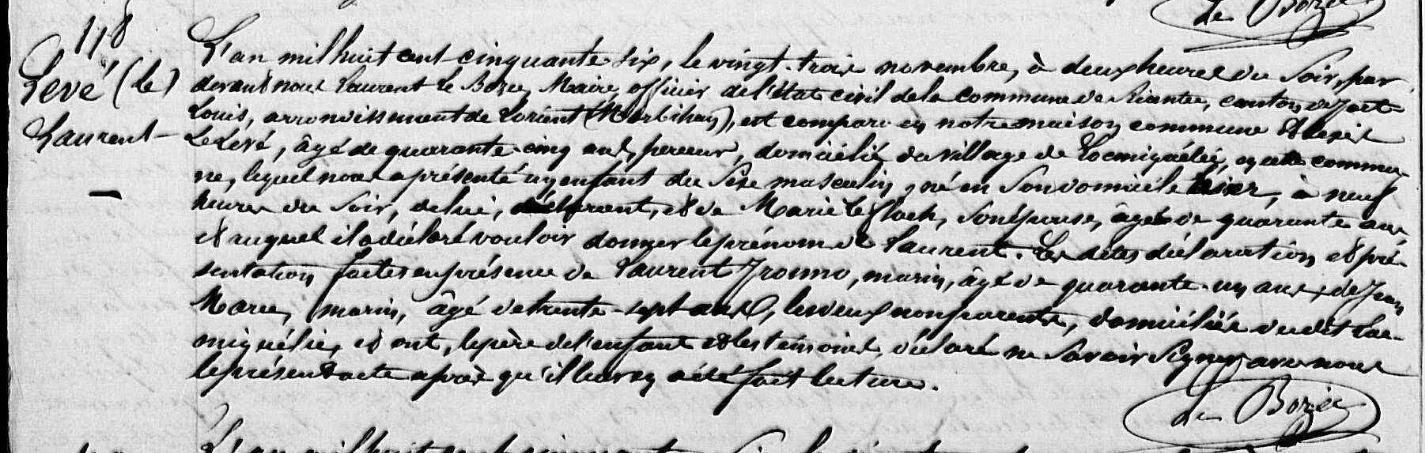 le Bozec
118
Levé (le)
Laurent
L'an mil huit cent cinquante six, le vingt-trois novembre, à deux heures du Soir, par
devant nous Laurent le Bozec, Maire, officier de l'état civil de la commune de Riantec, canton de Port
Louis, arrondissement de Lorient (Morbihan), est comparu en notre maison commune
Le Levé, âgé de quarante-cinq ans, domicilié du village de Locmiquélic, en cette commu-
ne, lequel nous a présenté un enfant du Sexe masculin, né en son domicile hier, à neuf
heures du Soir, de lui, déclarant, et de Marie le Floch, son épouse, âgée de quarante ans
et auquel il a déclaré vouloir donner le prénom de Laurent. Les dites déclaration et pré-
sentation faites en présence de Laurent marin, âgé de quarante-un ans, et de Jean
marin, âgé de trente-sept ans, les deux non parents, domiciliés du dit Loc-
miquélic, et ont, le père de l'enfant et les témoins, déclaré ne Savoir Signer avec nous
le présent acte après qu'il leur en a été fait lecture.
le Bozec
L'an mil huit cent cinquante Six, le vingt